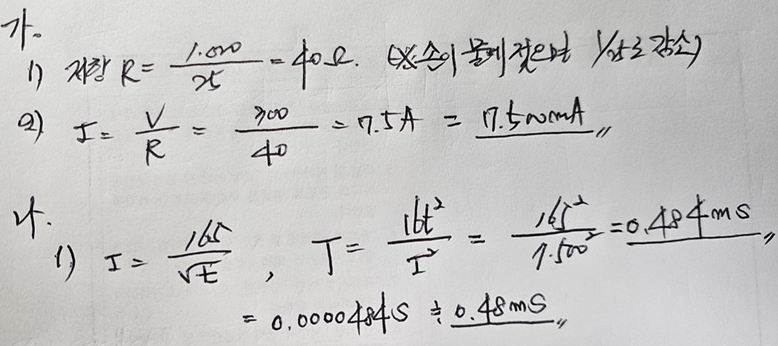 가.
1) 저항 R = 1.000/25 = 40Ω. (※손이 물에 젖으면 1/25로 감소)
2) I = V/R = 300/40 = 7.5A = 7.500mA〃
나.
1) I = 165/√t, T = 16t²/I² = 165²/7.500² = 0.484ms〃
= 0.000484S ≑ 0.48mS〃